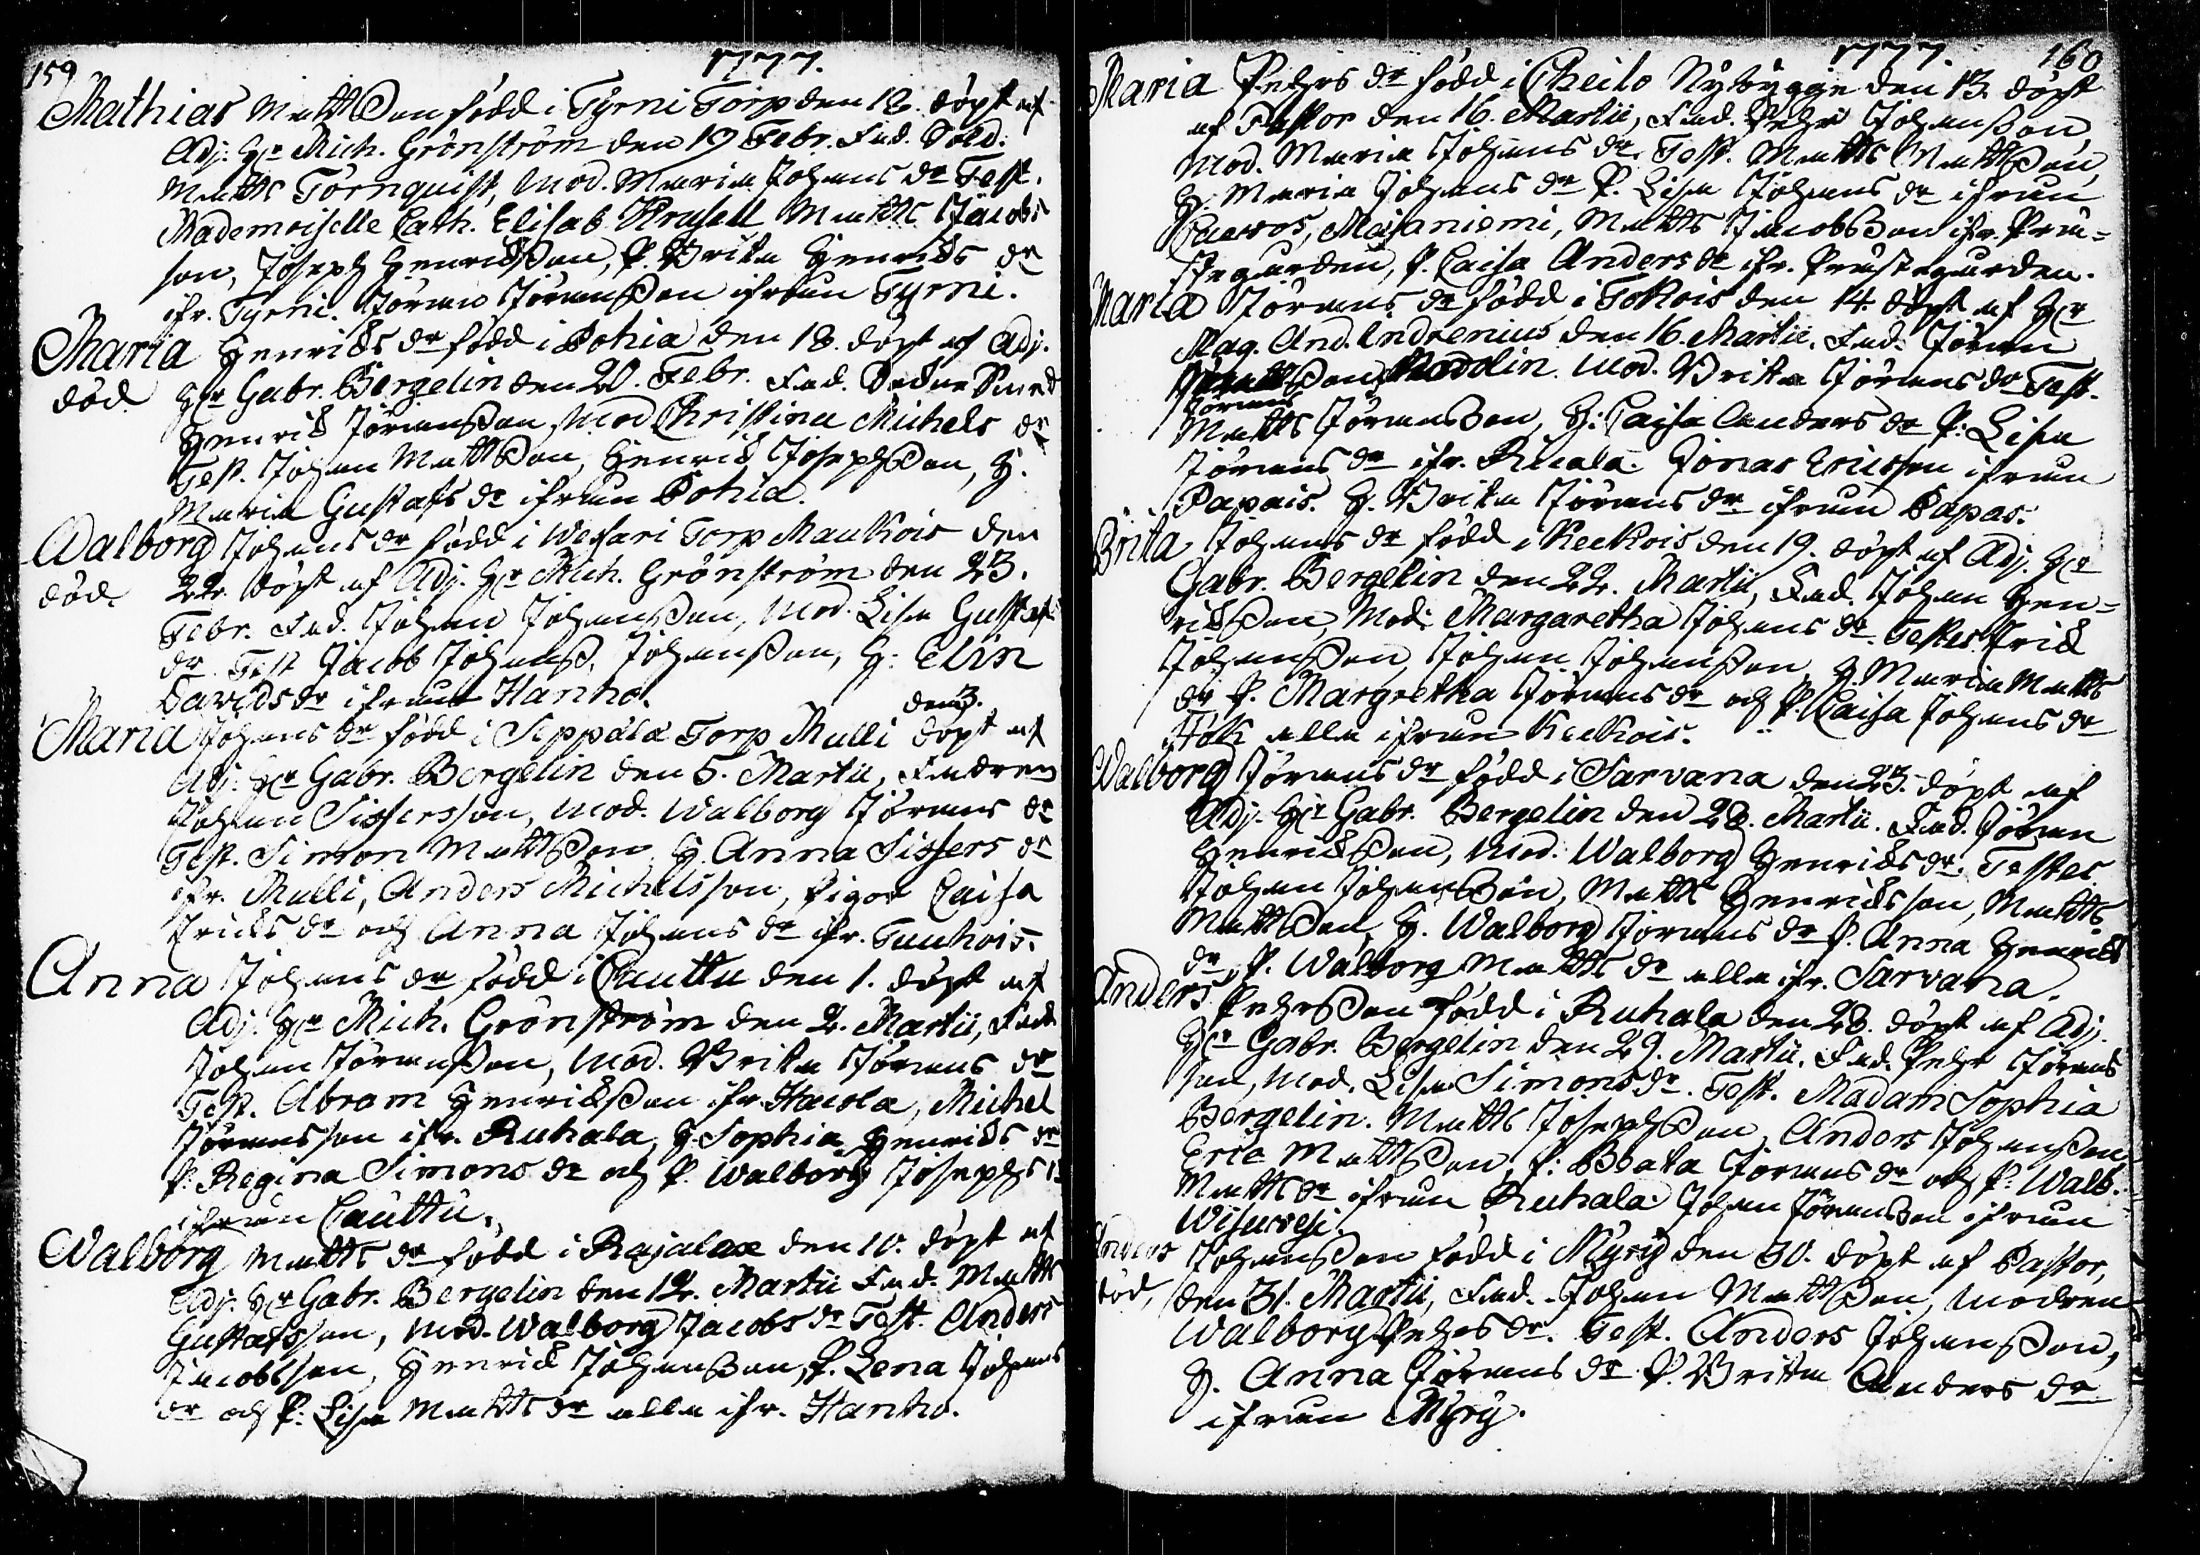 159
1777.
Mathias Matts Son född i Tyrni Torp den 18. döpt af
Adj. Hr Mich. Grönström den 19 Febr. Fad. Sold.
Matts Törnquist, Mod. Maria Johans dr Test.
Mademoiselle Cath. Elisab. Matts Jacobs
son, Joseph Henrichson, P. Brita Henrichs dr
ifr. Tyrni. Jöran Jöransson ifrån Tyrni.
Maria Henrichs dr född i Pohia den 18. döpt af Adj.
död Hr Gabr. Bergelin den 20. Febr. Fad. Smed
Henrich Jöransson, Mod Christina Michels dr
Test. Johan Mattsson, Henrich Josephson, H.
Maria Gustafs dr ifrån Pohia.
Walborg Johans dr född i Wesari Torp Maukois den
död. 22. döpt af Adj. Hr Mich. Grönström den 23.
Febr. Fad. Johan Johansson, Mod. Lisa Gustafs
dr Test Jacob Johanss, Johansson, H. Elin
Davids dr ifrån Hanho.
den 3.
Maria Johans dr född i Seppälä Torp Mulli döpt af
Adj. Hr Gabr. Bergelin den 5. Martii, Fadren
Johan Sissersson, Mod. Walborg Jörans dr
Test. Simon Mattsson, H. Anna Sissers dr
ifr. Mulli, Anders Michelsson, Pigor Caisa
Erichs dr och Anna Johans dr ifr. Tunhois.
Anna Johans dr född i Cauttu den 1. döpt af
Adj. Hr Mich. Grönström den 2. Martii, Fad.
Johan Jöransson, Mod. Brita Jörans dr
Test. Abram Henrichson ifr. Haiola, Michel
Jöransson ifr. Ruhala, H. Sophia Henrichs dr
P. Regina Simons dr och P. Walborg Josephs dr
ifrån Cauttu.
Walborg Matts dr född i Rajalax den 10. döpt af
Adj. Hr Gabr. Bergelin den 12. Martii Fad. Matts
Gustafsson, Mod. Walborg Jacobs dr Test. Anders
Jacobsson, Henrich Johansson, P. Lena Johans
dr och P. Lisa Matts dr alla ifr. Hanho.
1777.
160
Maria Pehrs dr född i Cheilo Nybygge den 13. döpt
af Pastor den 16. Martii, Fad. Pehr Johansson
Mod. Maria Johans dr. Test. Matts Mattsson,
H. Maria Johans dr P. Lisa Johans dr ifrån
Majaniemi, Matts Jacobsson ifr. Prä-
stegården, P. Caisa Anders dr ifr. Prästegården.
Maria Jörans dr född i Tokois den 14. döpt af Hr
Mag. And. Indrenius den 16. Martii. Fad. Jöran
Mod. Brita Jörans dr Test.
Jörans
Matts Jöransson, H. Caisa Anders dr P. Lisa
Jörans dr ifr. Ricala. Jonas Ericsson ifrån
Papais. H. Brita Jörans dr ifrån Papas.
Brita Johans dr född i Keekois den 19. döpt af Adj. Hr
Gabr. Bergelin den 22. Martii, Fad. Johan Hen-
richson, Mod. Margaretha Johans dr. Testes Erich
Johansson, Johan Johansson, H. Maria Matts
dr P. Margretha Jörans dr och P. Caisa Johans dr
Höök alla ifrån Keekois.
Walborg Jörans dr född i Sarvana den 23. döpt af
Adj. Hr Gabr. Bergelin den 28. Martii. Fad. Jöran
Henrichson, Mod. Walborg Henrichs dr. Testes
Johan Johansson, Matts Henrichsson, Matts
Mattsson, H. Walborg Jörans dr P. Anna Henrichs
dr, P. Walborg Matts dr alla ifr. Sarvana.
Anders Pehrsson född i Ruhala den 28. döpt af Adj.
Hr Gabr. Bergelin den 29. Martii. Fad. Pehr Jörans
son, Mod. Lisa Simons dr. Test. Madam Sophia
Bergelin. Matts Josephsson, Anders Johansson,
Eric Mattsson, P. Beata Jörans dr och P. Walb.
Matts dr ifrån Ruhala. Johan Jöransson ifrån
Wisuvesi.
Anders Johansson född i Myry den 30. döpt af Pastor,
död, den 31. Martii, Fad. Johan Mattsson, Modren
Walborg Pehrs dr. Test. Anders Johansson,
H. Anna Jörans dr P. Britta Anders dr
ifrån Myry.